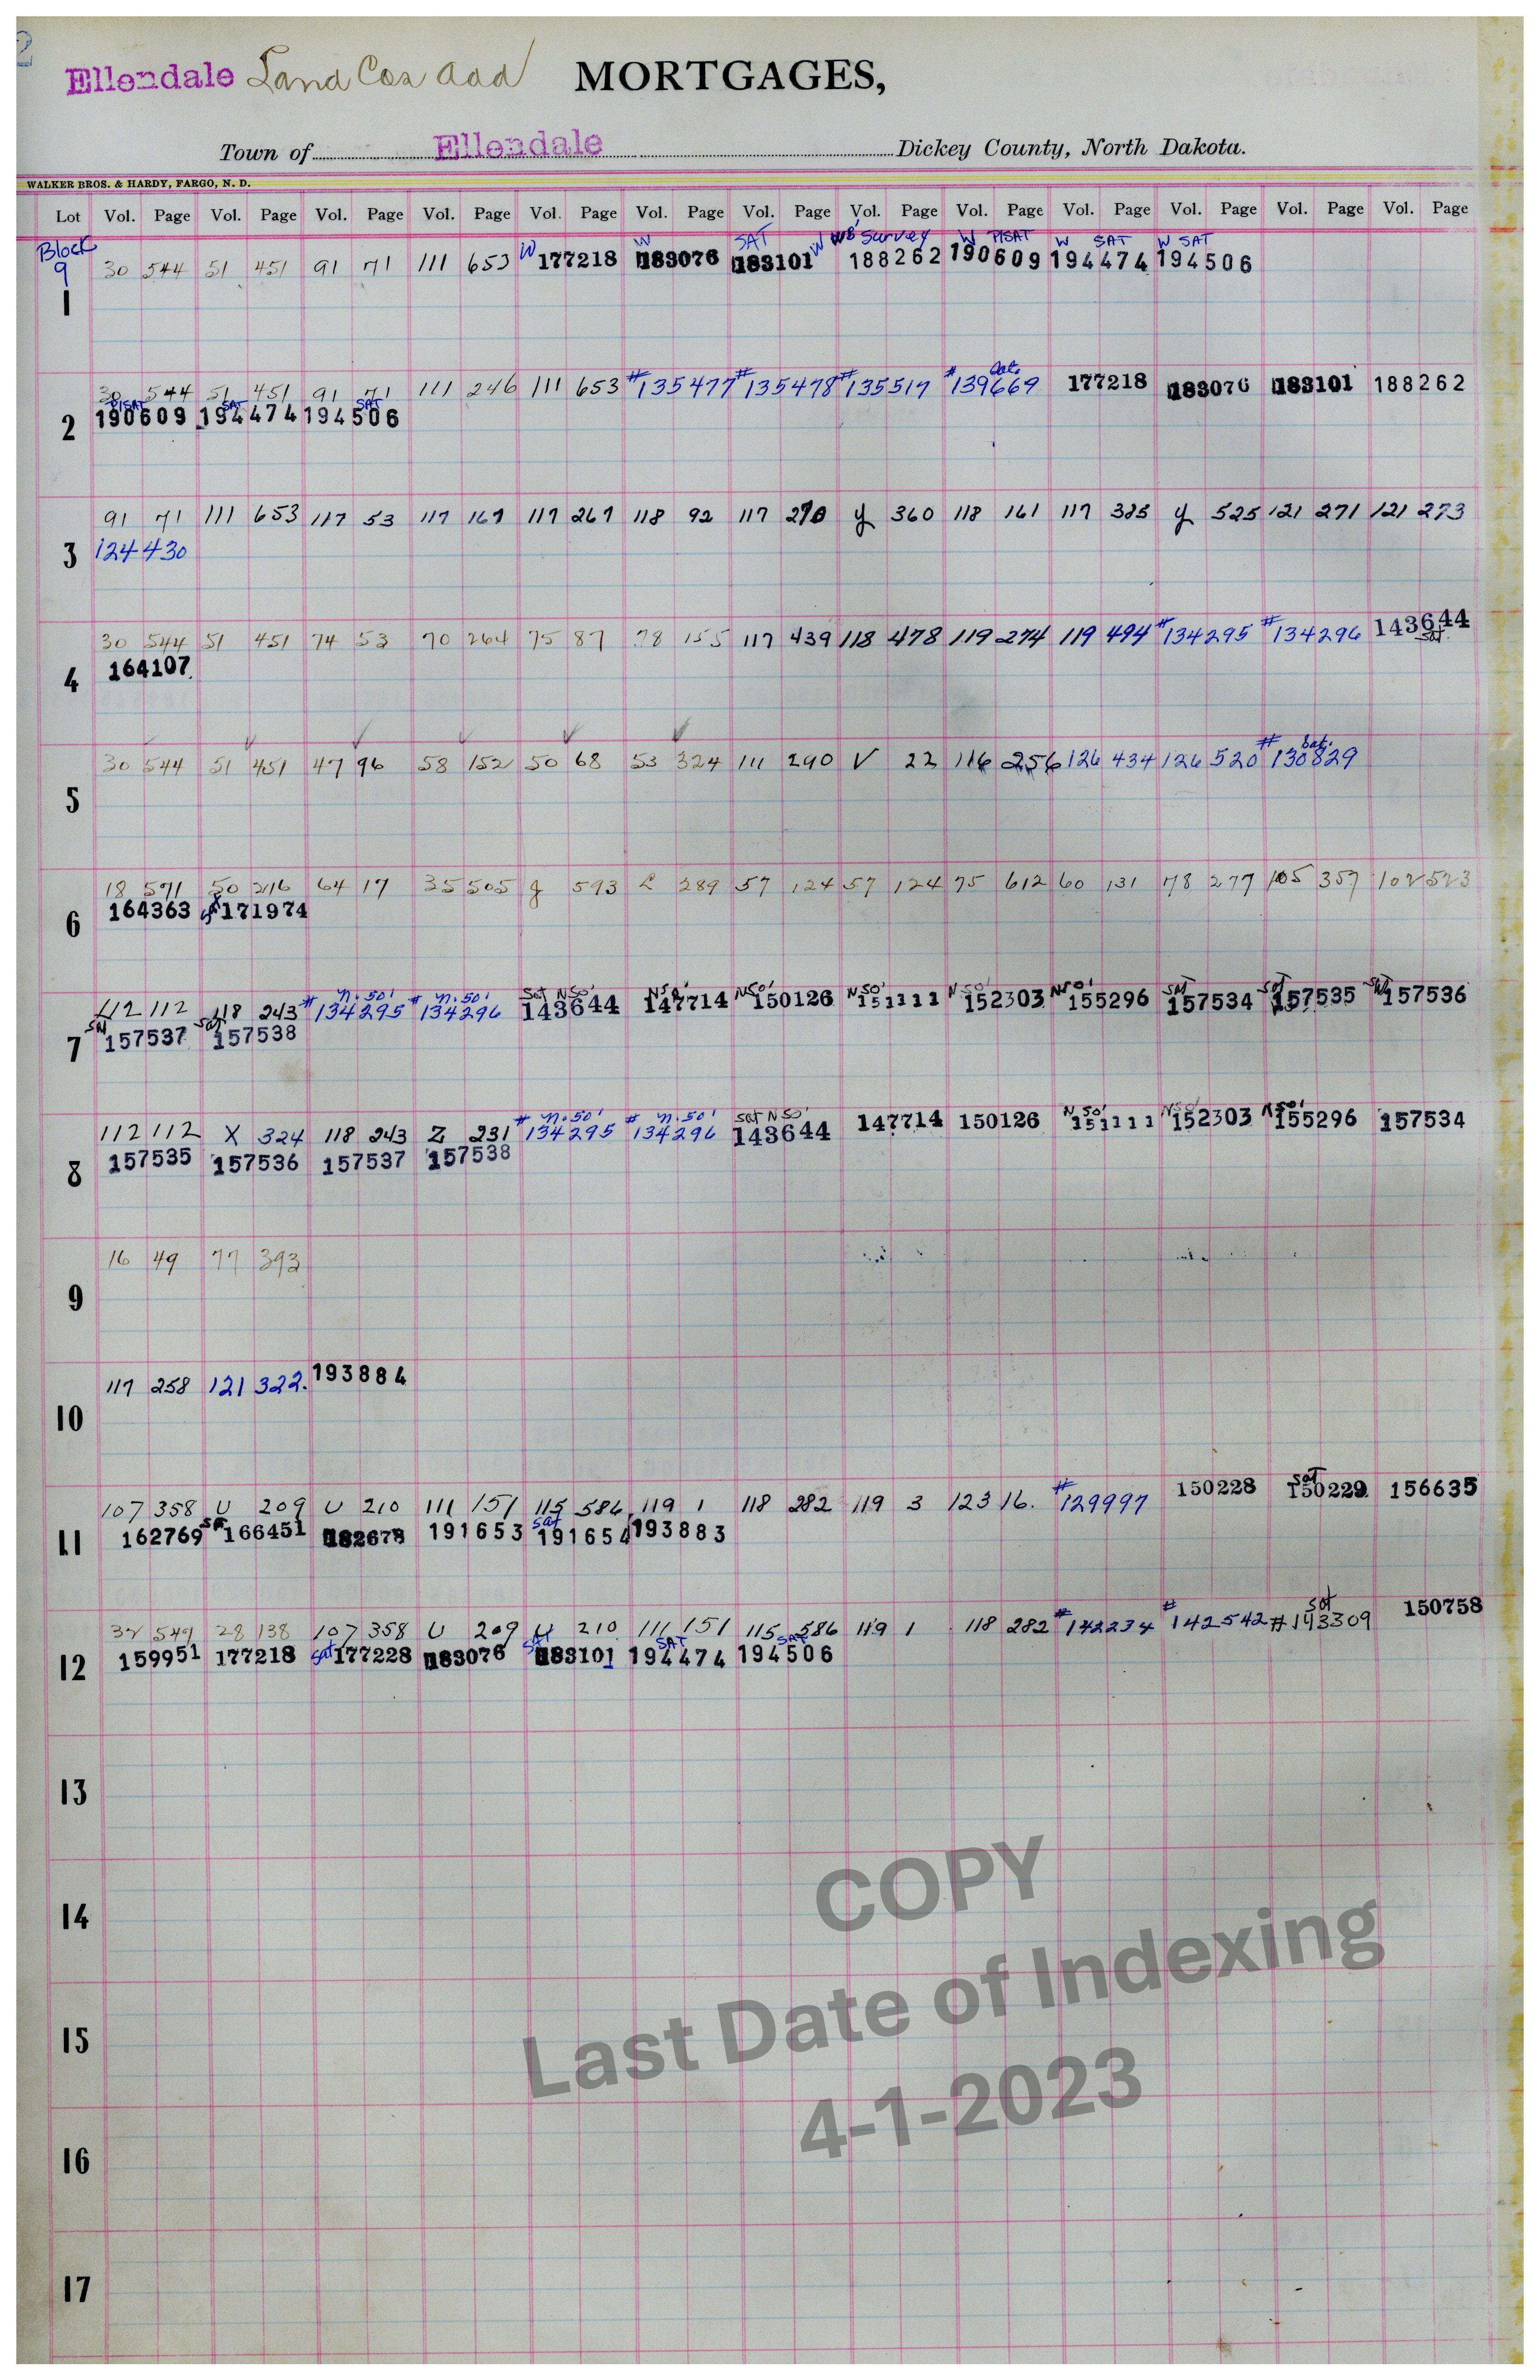 2
Ellendale Land Cos add MORTGAGES,
Town of Ellendale Dickey County, North Dakota.
WALKER BROS. & HARDY, FARGO, N. D.
Lot Vol. Page Vol. Page Vol. Page Vol. Page Vol. Page Vol. Page Vol. Page Vol. Page Vol. Page Vol. Page Vol. Page Vol. Page Vol. Page
Block W W SAT W W 8' Survey W P/SAT W SAT W SAT
9 30 544 51 451 91 71 111 653 177218 183076 183101 188262 190609 194474 194506
1
Sat.
30 544 51 451 91 71 111 246 111 653 #135477 #135478 #135517 #139669 177218 183076 183101 188262
P/SAT SAT SAT
190609 194474 194506
2
91 71 111 653 117 53 117 167 117 267 118 92 117 270 y 360 118 161 117 385 y 525 121 271 121 273
124 430
3
30 544 51 451 74 53 70 264 75 87 78 155 117 439 118 478 119 274 119 494 #134295 #134296 143644
sat.
164107
4
Sat.
30 544 51 451 47 96 58 152 50 68 53 324 111 290 V 22 116 256 126 434 126 520 #130829
5
18 571 50 216 64 17 35 505 g 593 L 289 57 124 57 124 75 612 60 131 78 277 105 357 102 523
164363 sat 171974
6
n. 50' n. 50' Sat N50' N50' N50' N50' N50' N50' sat sat sat
112 112 118 243 #134295 #134296 143644 147714 150126 151111 152303 155296 157534 157535 157536
sat sat
157537 157538
7
n. 50' n. 50' sat N50' N50' N50' N50'
112 112 X 324 118 243 Z 231 #134295 #134296 143644 147714 150126 151111 152303 155296 157534
157535 157536 157537 157538
8
16 49 77 393
9
117 258 121 322. 193884
10
sat
107 358 U 209 U 210 111 151 115 586 119 1 118 282 119 3 123 16. #129997 150228 150229 156635
sat sat
162769 166451 182678 191653 191654 193883
11
sat
32 549 28 138 107 358 U 209 U 210 111 151 115 586 119 1 118 282 #142234 #142542 #143309 150758
sat SAT SAT SAT
159951 177218 177228 183076 183101 194474 194506
12
13
14
15
16
17
COPY
Last Date of Indexing
4-1-2023